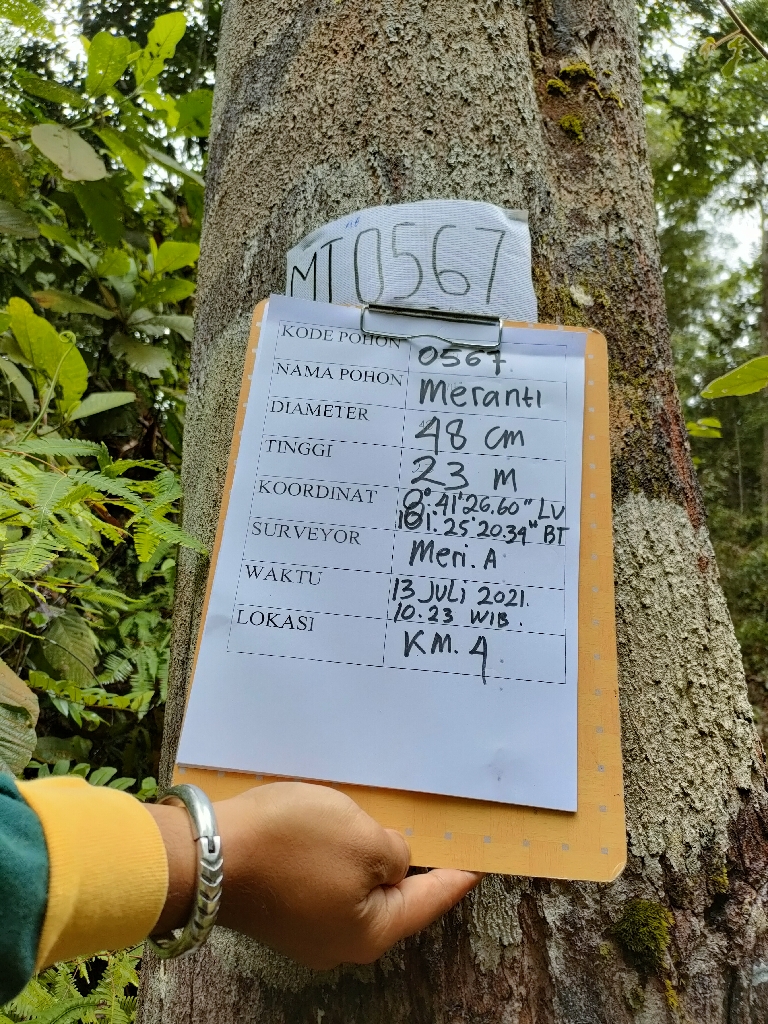 MT 0567
KODE POHON 0567
NAMA POHON Meranti
DIAMETER 48 cm
TINGGI 23 M
KOORDINAT 0°.41'26.60" LV
101.25'20.34" BT
SURVEYOR Meri. A
WAKTU 13 JULI 2021.
10.23 WIB.
LOKASI KM. 4